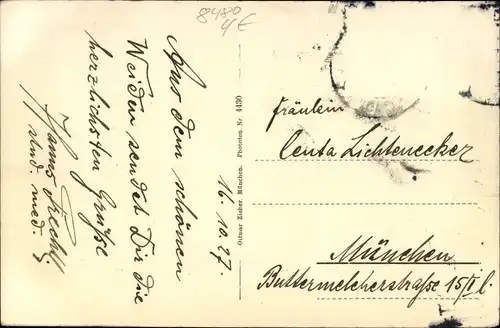 8480
4€
16.10.27.
Aus dem schönen
Weiden sendet Dir die
herzlichsten Grüße
Hanns
stud. med.
Ottmar Zieher, München. Phototon Nr. 4430
Fräulein
Centa Lichtenecker
München
Buttermelcherstraße 15/I l.